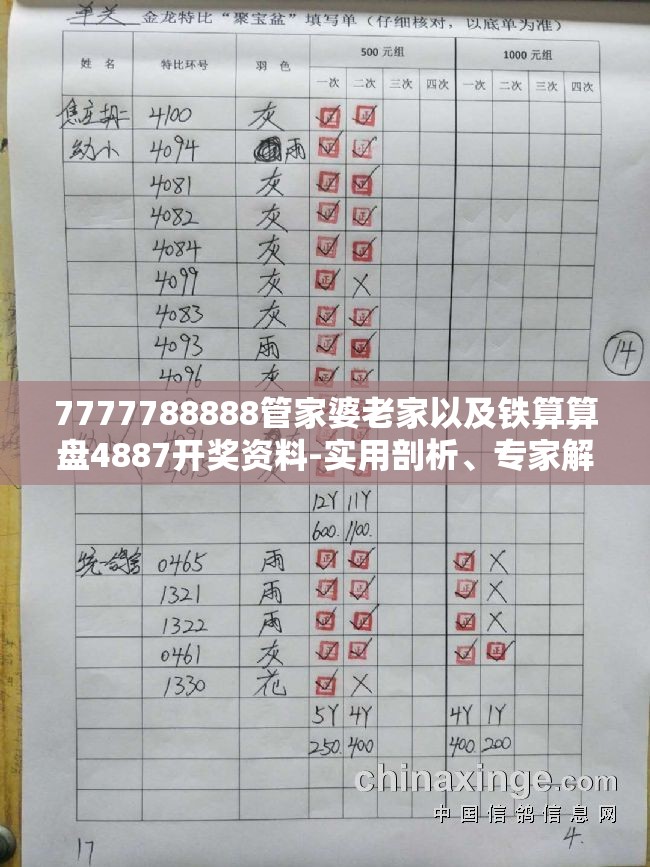 单关 金龙特比“聚宝盆”填写单（仔细核对，以底单为准）
姓 名 特比环号 羽 色 500 元组 1000 元组
一次 二次 三次 四次 一次 二次 三次 四次
4100 灰 正 正
幼小 4094 雨 正 正
4081 灰 正 正
4082 灰 正 正
4084 灰 正 正
4099 灰 正 X
4083 灰 正 正
4093 雨 正 正
14
4096 灰 正 正
7777788888管家婆老家以及铁算算
盘4887开奖资料-实用剖析、专家解
12Y 11Y
600. 1100.
0465 雨 正 正 正 X
1321 雨 正 正 正 X
1322 雨 正 正 正 X
0461 灰 正 正 正 正
1330 花 正 X
5Y 4Y 4Y 1Y
250. 400 400 200
chinaxinge.com
中国信鸽信息网
17 4.